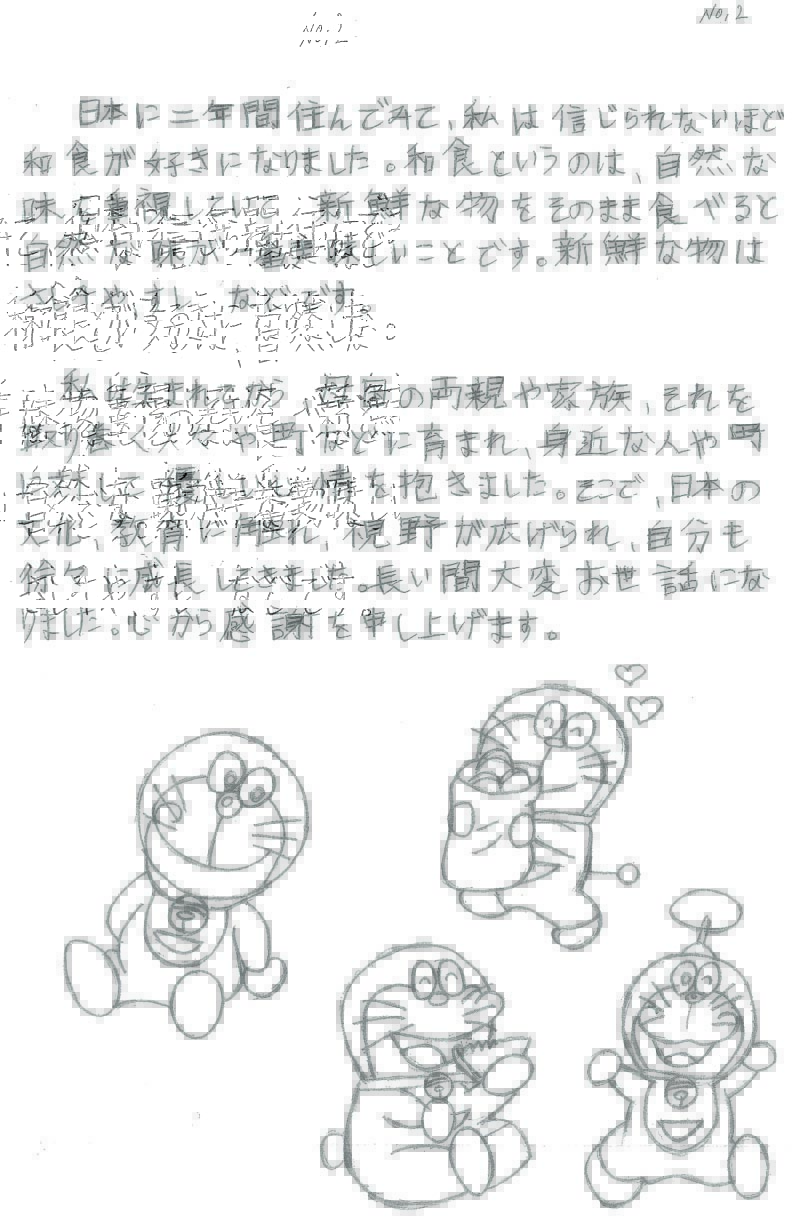 No. 2
日本に二年間住んでみて、私は信じられないほど
和食が好きになりました。和食というのは、自然な
味を重視している。新鮮な物をそのまま食べると
自然な味が一番美味しいことです。新鮮な物は
などです。
私は生まれてから、の両親や家族、それを
取り巻く人々や町などに育まれ、身近な人や町
に対して感情を抱きました。そこで、日本の
文化、教育に触れ、視野が広げられ、自分も
徐々に成長してきました。長い間大変お世話にな
りました。心から感謝を申し上げます。